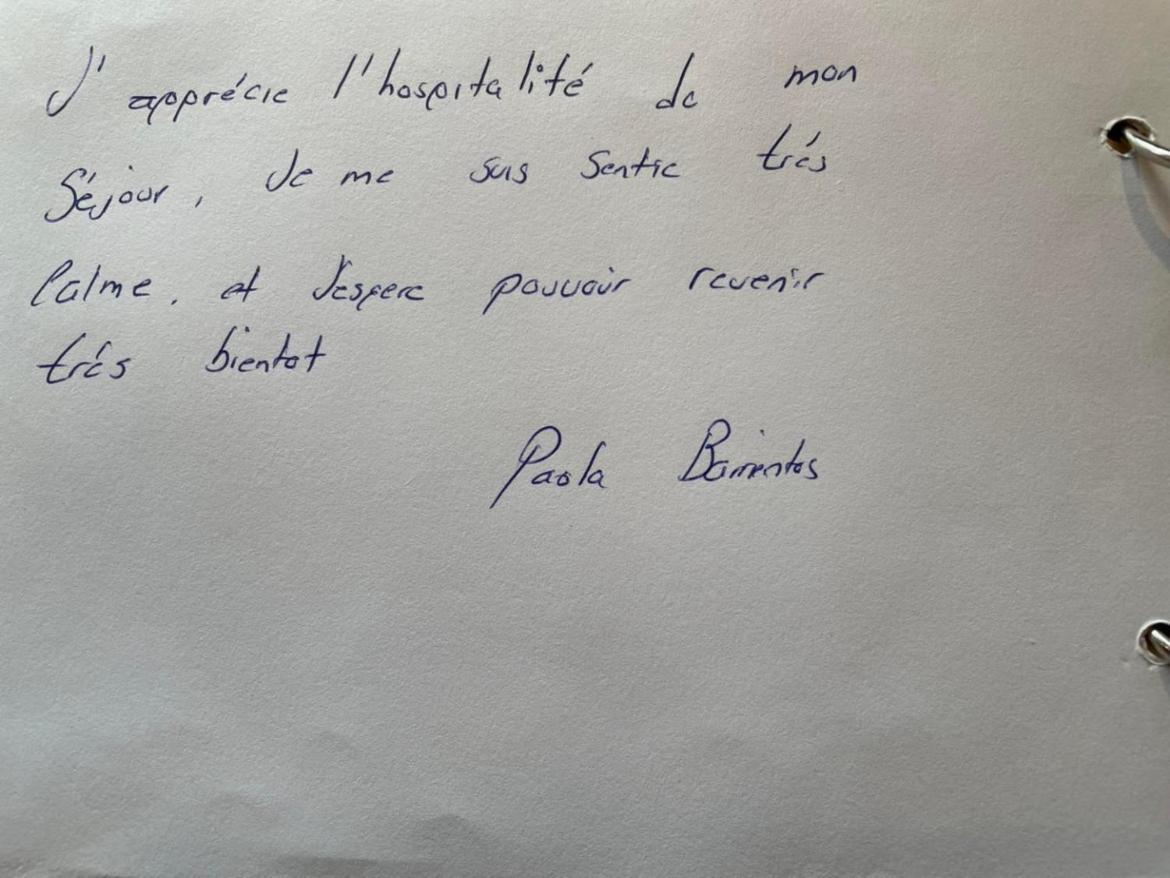 J'apprécie l'hospitalité de mon
Séjour, Je me suis Sentie trés
Calme, et J'espere pouvoir revenir
trés bientot
Paola Barrientos